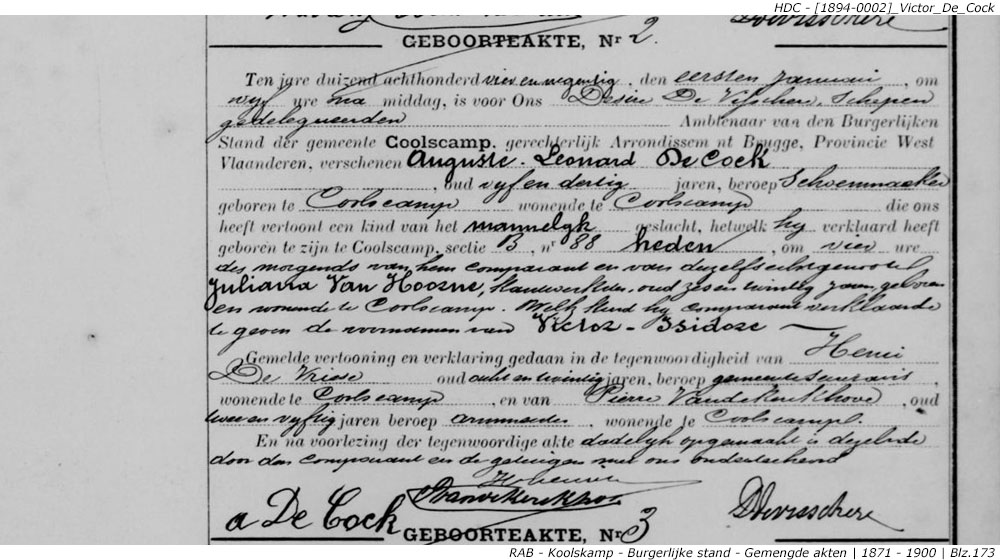 HDC - [1894-0002]_Victor_De_Cock
Devisschere
GEBOORTEAKTE, Nr 2.
Ten jare duizend achthonderd vier en negentig, den eersten januari, om
vyf ure na middag, is voor Ons Desiré De Visschere, Schepen
gedelegueerden Ambtenaar van den Burgerlijken
Stand der gemeente Coolscamp, gerechterlijk Arrondissem nt Brugge, Provincie West
Vlaanderen, verschenen Auguste-Leonard De Cock
, oud vyf en dertig jaren, beroep Schoenmaeker
geboren te Coolscamp wonende te Coolscamp die ons
heeft vertoont een kind van het mannelyk geslacht, hetwelk hy verklaard heeft
geboren te zijn te Coolscamp, sectie B, nr 88 heden, om vier ure
des morgends van hem comparant en van dezelfs echtgenoote
Juliana Van Hoorne, oud zes en twintig jaren, geboren
en wonende te Coolscamp. Welk kind hy comparant verklaarde
te geven de voornamen van Victor-Isidore
Gemelde vertooning en verklaring gedaan in de tegenwoordigheid van Henri
De Vriese oud acht en twintig jaren, beroep gemeentesecretaris,
wonende te Coolscamp, en van Pierre Vandekerckhove, oud
twee en vyftig jaren beroep, wonende te Coolscamp.
En na voorlezing der tegenwoordige akte dadelyk opgemaakt is dezelve
door den comparant en de getuigen met ons onderteekend
a De Cock
P Vandekerckhove
Devisschere
GEBOORTEAKTE, Nr 3
RAB - Koolskamp - Burgerlijke stand - Gemengde akten | 1871 - 1900 | Blz.173